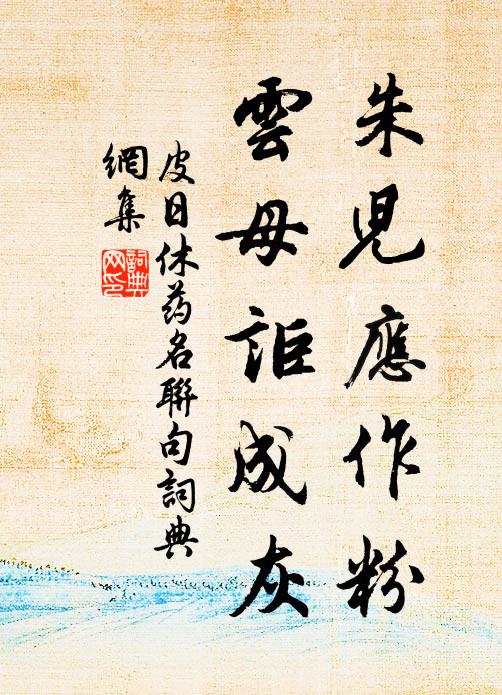 朱兒應作粉
雲母詎成灰
皮日休药名聯句詞典
網集
詞典
网印